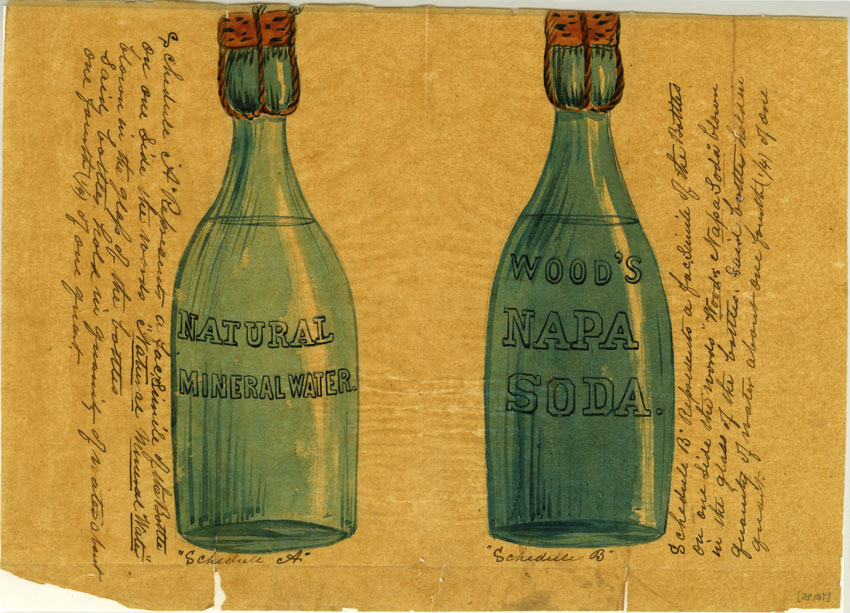 Schedule "A" Represents a facsimile of the Bottles
on one side the words "Natural Mineral Water"
blown in the glass of the bottles
Said bottles hold in quantity of water about
one fourth (1/4) of one quart
NATURAL
MINERAL WATER.
"Schedule A"
WOOD'S
NAPA
SODA.
"Schedule B"
Schedule B" Represents a facsimile of the Bottles
on one side the words "Wood's Napa Soda" blown
in the glass of the bottles. Said bottles hold in
quantity of water about one fourth (1/4) of one
quart